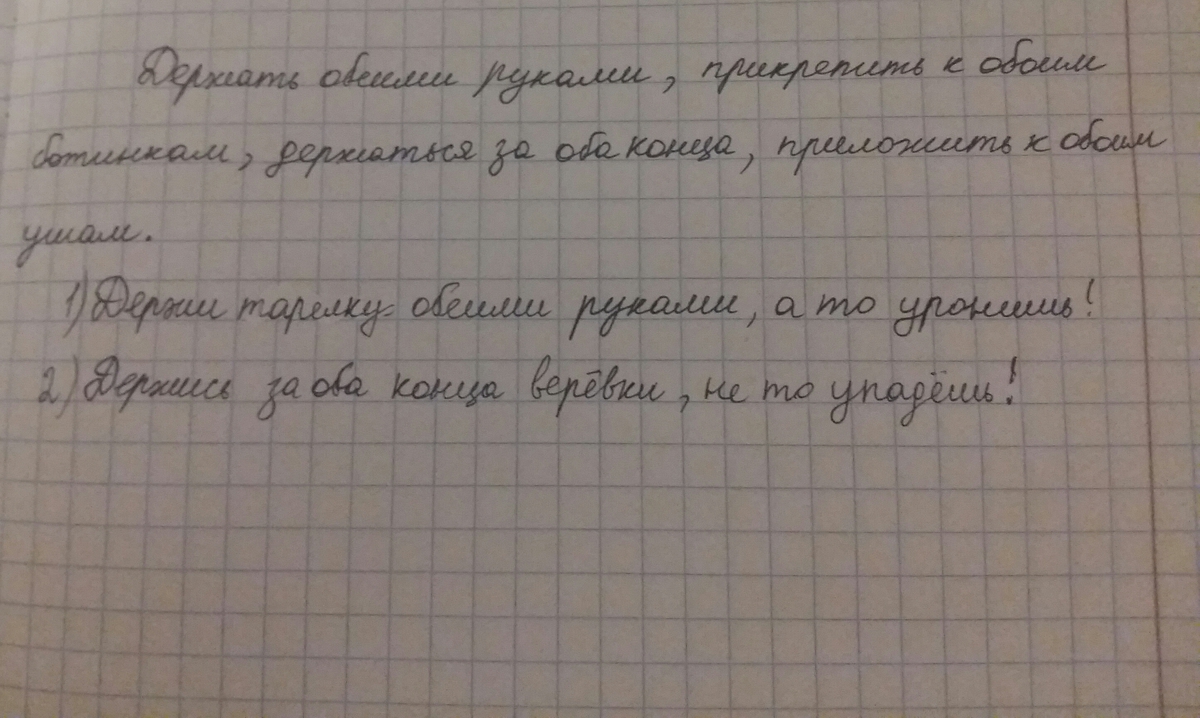 Держать обеими руками, прикрепить к обоим
ботинкам, держаться за оба конца, приложить к обоим
ушам.
1) Держи тарелку обеими руками, а то уронишь!
2) Держись за оба конца верёвки, не то упадёшь!